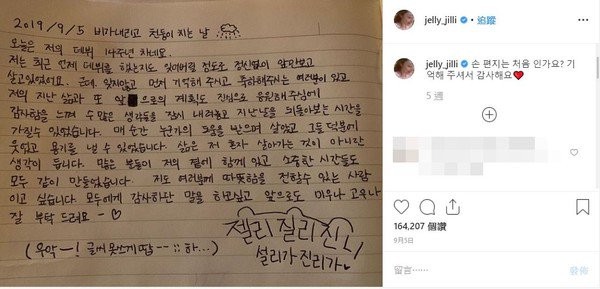 2019 / 9 / 5 비가내리고 천둥이 치는 날
오늘은 저의 데뷔 14주년 차네요.
저는 최근 언제 데뷔를 했는지도 잊어버릴 정도로 정신없이 앞만보고
살고있었어요. 근데 잊지않고 먼저 기억해 주시고 축하해주시는 여러분이 있고
저의 지난 삶과 또 앞으로의 계획도 진심으로 응원해주심에
감사함을 느껴 수 많은 생각들을 잠시 내려놓고 지난날을 뒤돌아보는 시간을
가질수 있었습니다. 매 순간 누군가의 도움을 받으며 살았고 그들 덕분에
웃었고 용기를 낼 수 있었습니다. 삶은 저 혼자 살아가는 것이 아니란
생각이 듭니다. 많은 분들이 저의 곁에 함께 있고 소중한 시간들도
모두 같이 만들었습니다. 저도 여러분께 따뜻함을 전할수 있는 사람
이고 싶습니다. 모두에게 감사하단 말을 하고싶고 앞으로도 미우나 고우나
잘 부탁 드려요 ~ ♡
젤리 질리 진리
설리가 진리가
(우악ㅡ! 글씨 못쓰게됨 -- ;; 하...)
jelly_jilli • 追蹤
jelly_jilli 손 편지는 처음 인가요? 기
억해 주셔서 감사해요❤
5 週
164,207 個讚
9月5日
留言⋯⋯
發佈